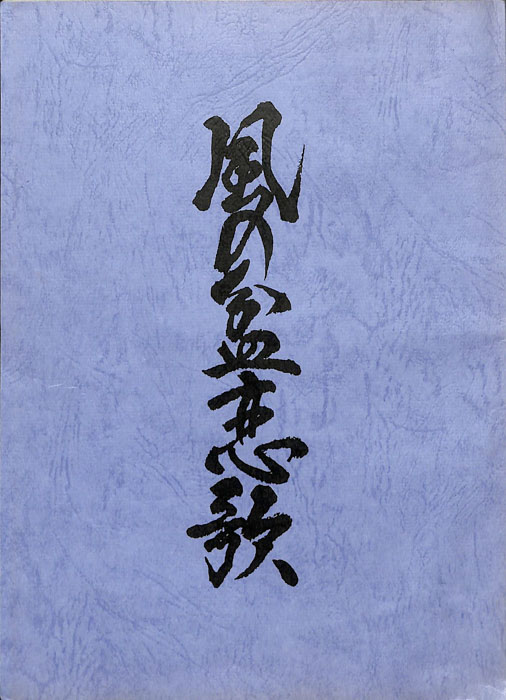 風の盆恋歌